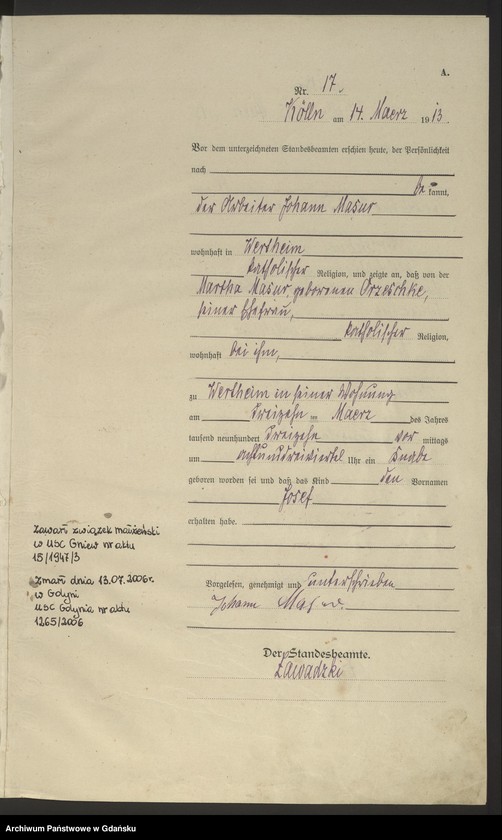 A.
Nr. 17.
Kölln am 14. Maerz 1913.
Vor dem unterzeichneten Standesbeamten erschien heute, der Persönlichkeit
nach
be kannt,
der Arbeiter Johann Masur
wohnhaft in Wertheim
katholischer Religion, und zeigte an, daß von der
Martha Masur, geborenen Orzeschke,
seiner Ehefrau,
katholischer Religion,
wohnhaft bei ihm,
zu Wertheim in seiner Wohnung
am dreizehn ten Maerz des Jahres
tausend neunhundert dreizehn vor mittags
um achtunddreiviertel Uhr ein Knabe
geboren worden sei und daß das Kind den Vornamen
Josef
erhalten habe.
Vorgelesen, genehmigt und unterschrieben
Johann Masur.
Der Standesbeamte.
Zawadzki
zawarł związek małżeński
w USC Gniew nr aktu
15/1947/3
zmarł dnia 13.07.2006r.
w Gdyni
USC Gdynia nr aktu
1265/2006
Archiwum Państwowe w Gdańsku